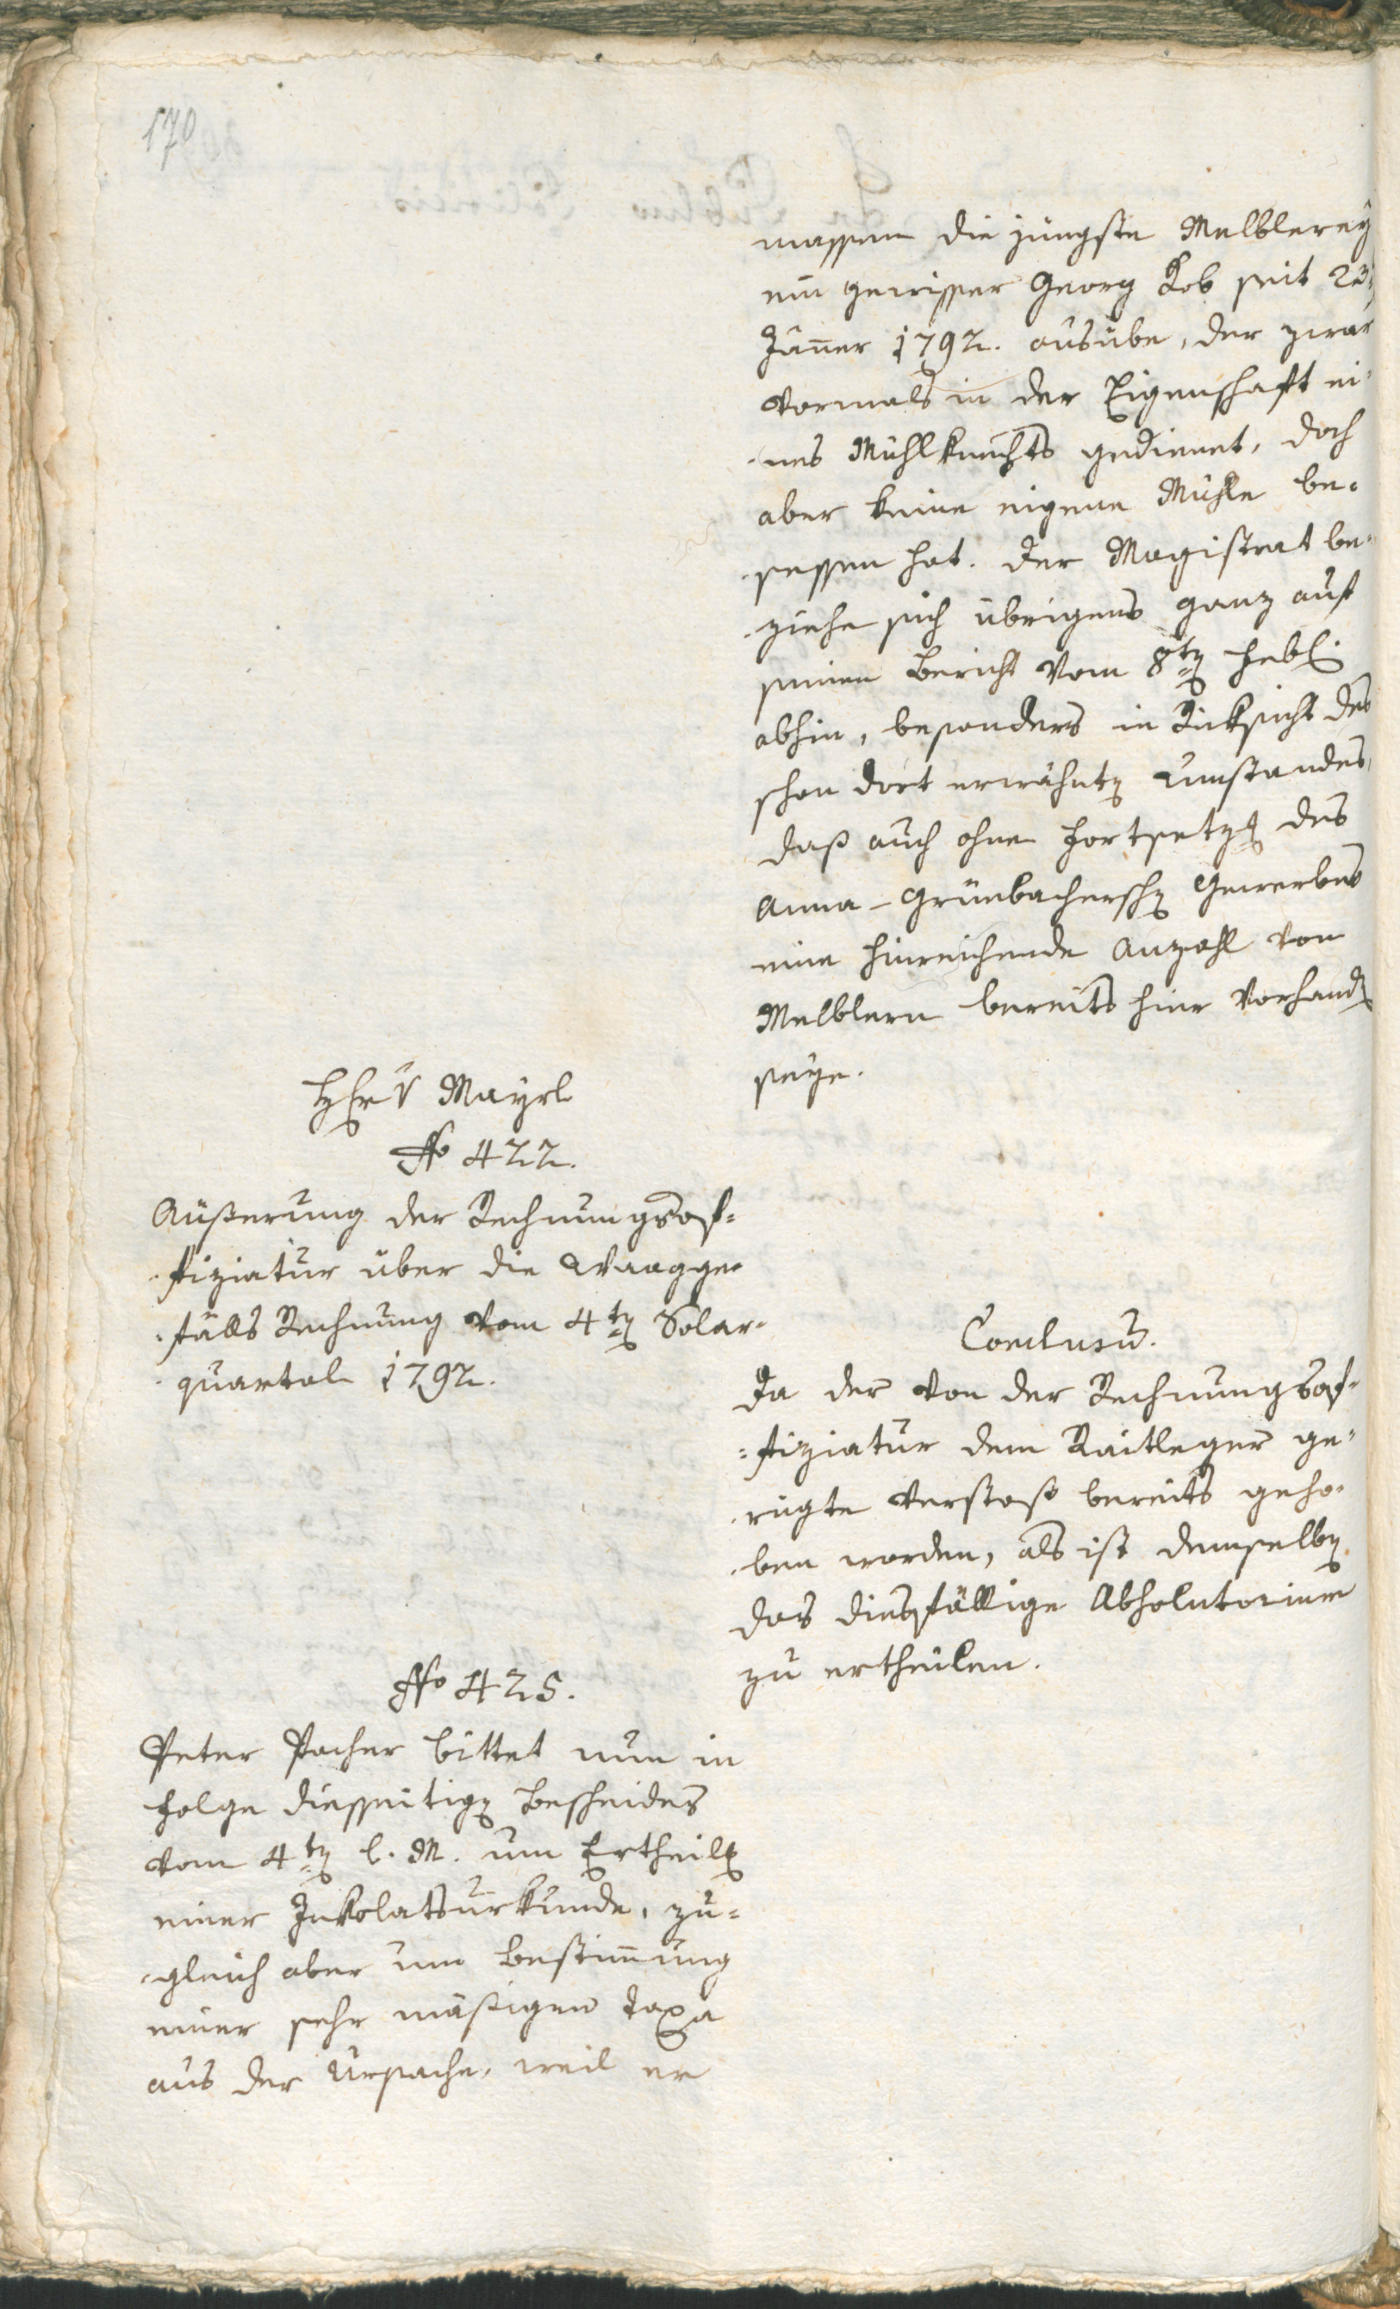 170
massen die jüngste Melblereÿ
ein gewisser Georg Lob seit 23
Jäner 1792. ausübe, der zwar
vormals in der Eigenschaft ei¬
nes Mühlknechts gedienet, doch
aber keine eigene Mühle be¬
sessen hat. Der Magistrat be¬
ziehe sich übrigens ganz auf
seinen Bericht vom 8ten Feb.
abhin, besonders in Rücksicht des
schon dort erwähnten Umstandes,
daß auch ohne Fortsetzg des
Anna-Grünbacherschen Gewerbes
eine hinreichende Anzahl von
Melblern bereits hier vorhanden
seÿe.
Mayrl
No 422.
Äußerung der Rechnungsof¬
fiziatur über die Waagge¬
fälls Rechnung vom 4ten Solar¬
quartal 1792.
Conclusũ.
Da der von der Rechnungsof¬
fiziatur dem Raitleger ge¬
rügte Verstoß bereits geho¬
ben worden, als ist demselben
das diesfällige Absolutorium
zu ertheilen.
No 425.
Peter Pacher bittet nun in
Folge diesseitigen Bescheides
vom 4ten l. M. um Ertheilg
einer Inkolatsurkunde, zu¬
gleich aber um Bestim̅ung
einer sehr mäßigen Taxa
aus der Ursache, weil er